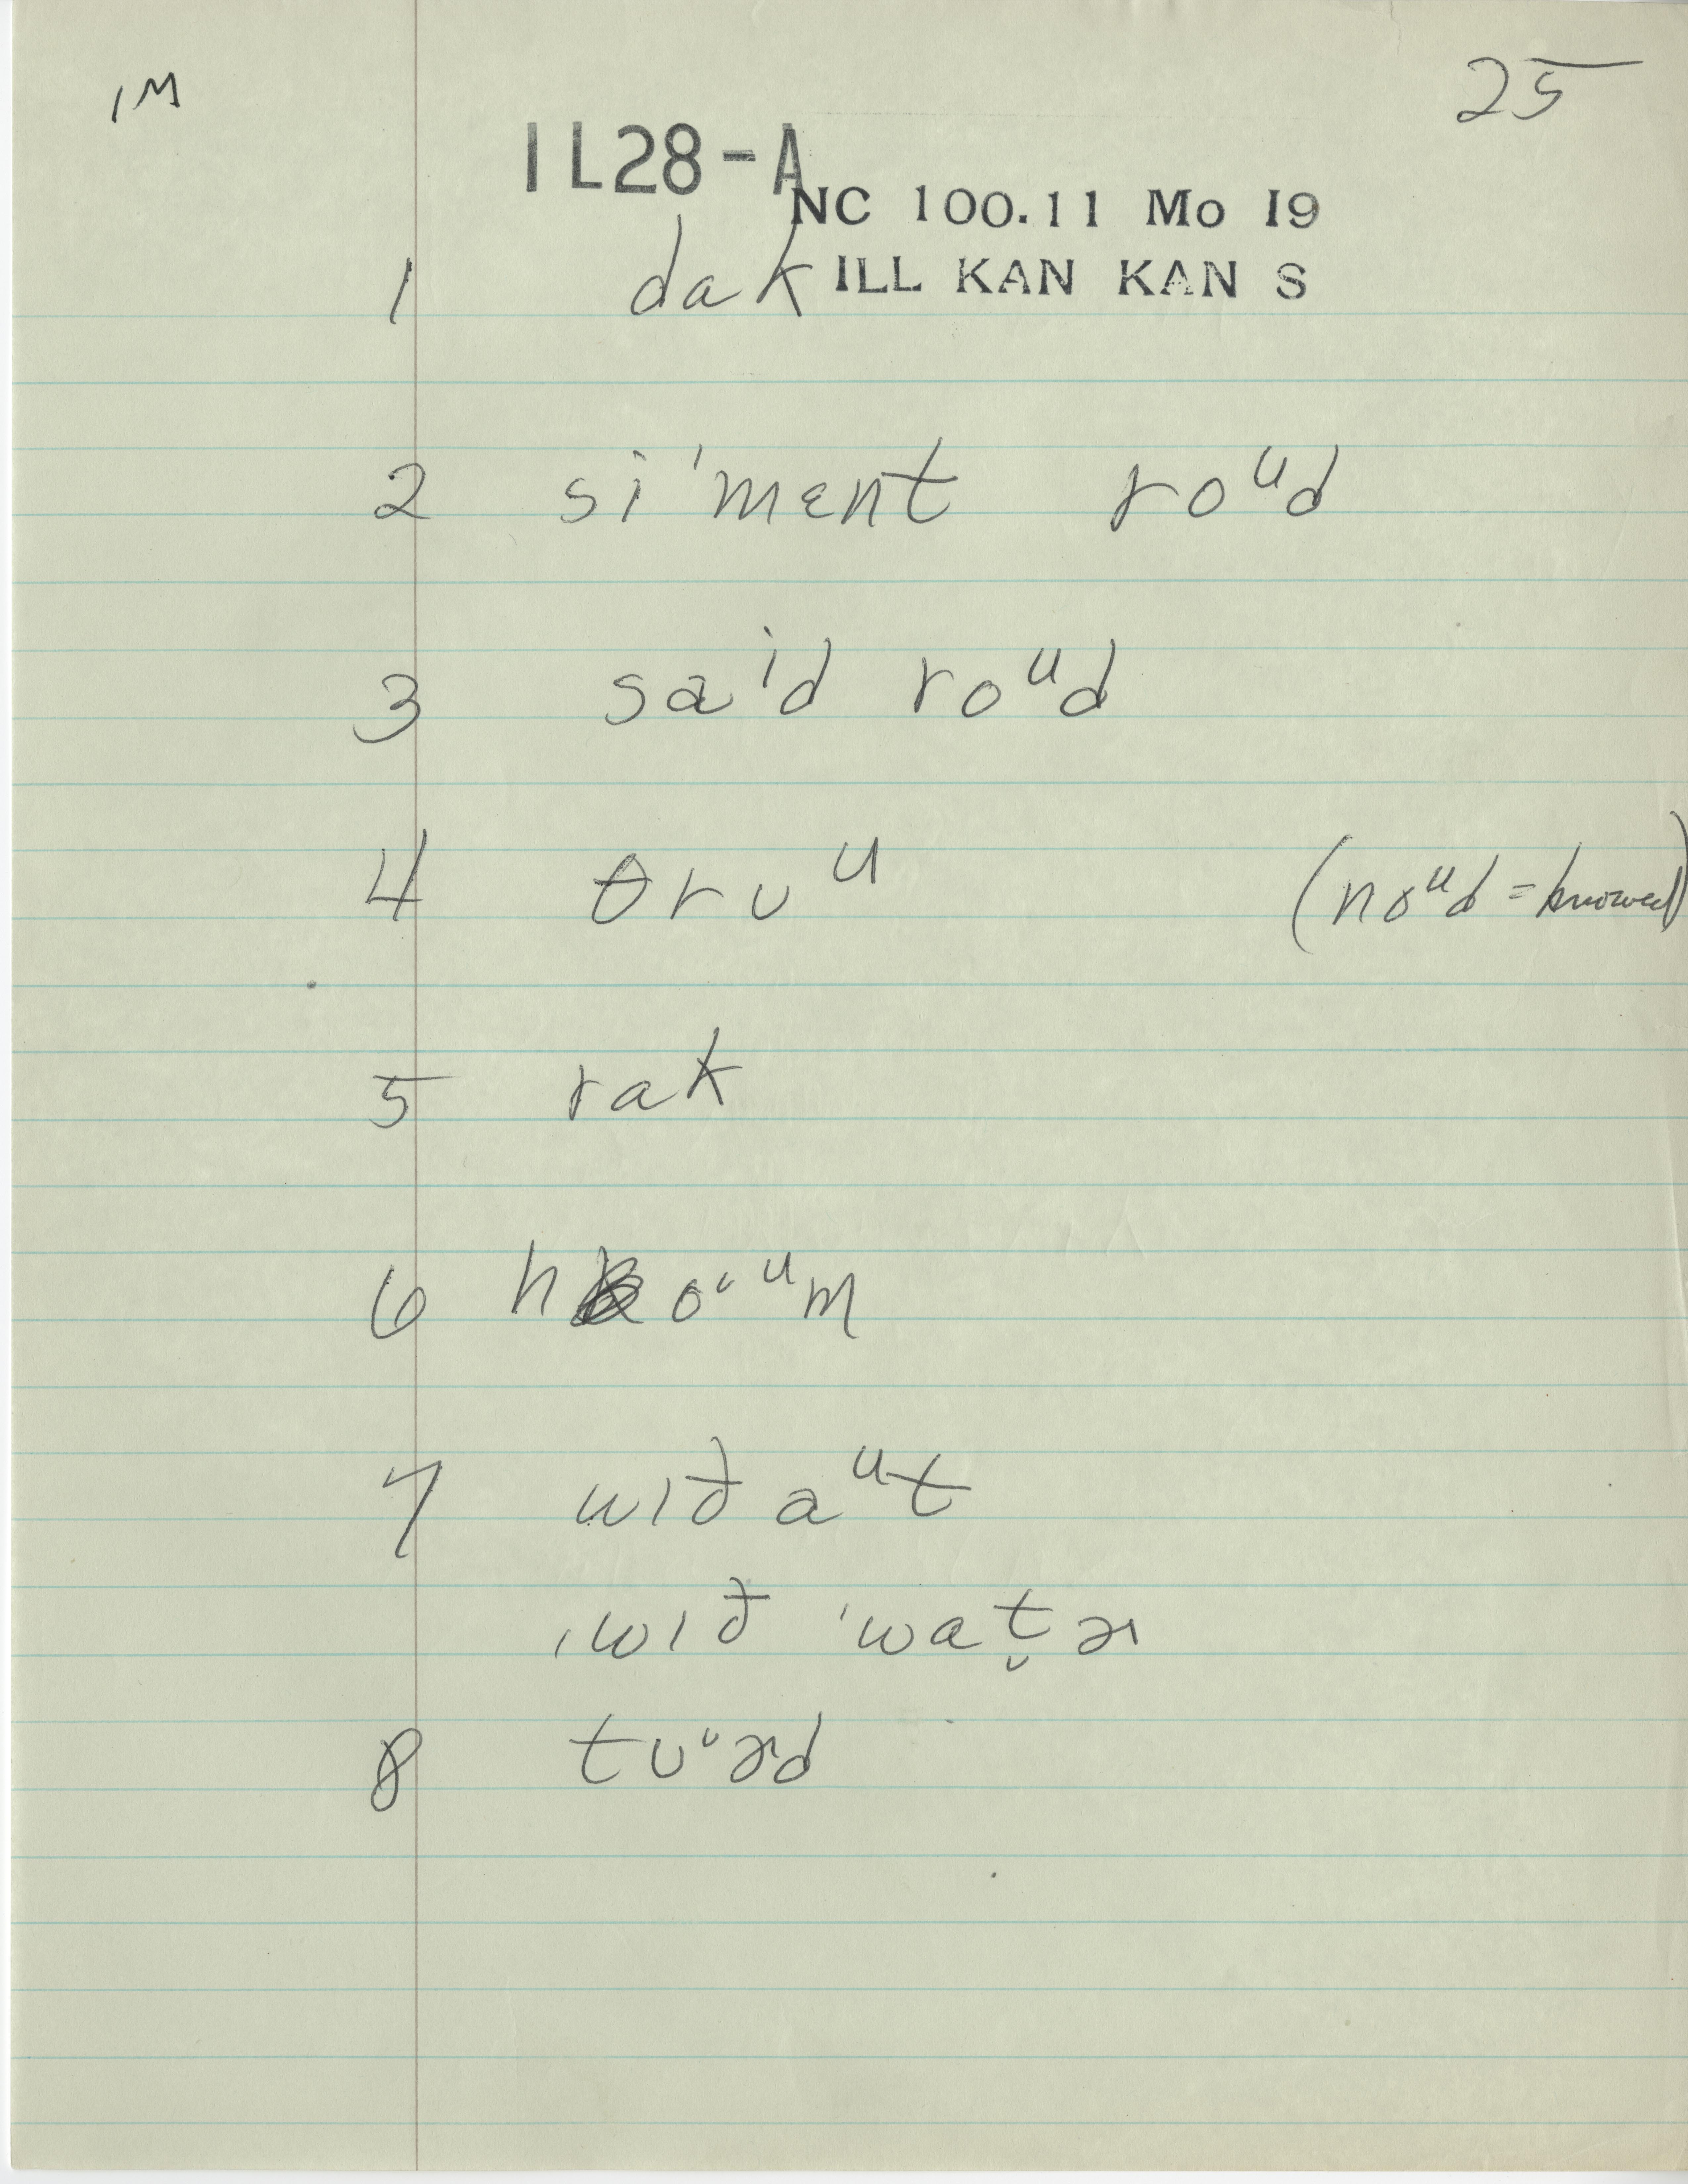 1M
25
1L28-A
NC 100.11 Mo I9
1 dak ILL KAN KAN S
2 si'mɛnt roᵘd
3 saⁱd roᵘd
4 θrʊᵘ (noᵘd = knowed)
5 rak
6 ho˅ᵘm
7 wɪðaᵘt
ˌwɪð ˈwat̬ɚ
8 tʊ˅ɚd